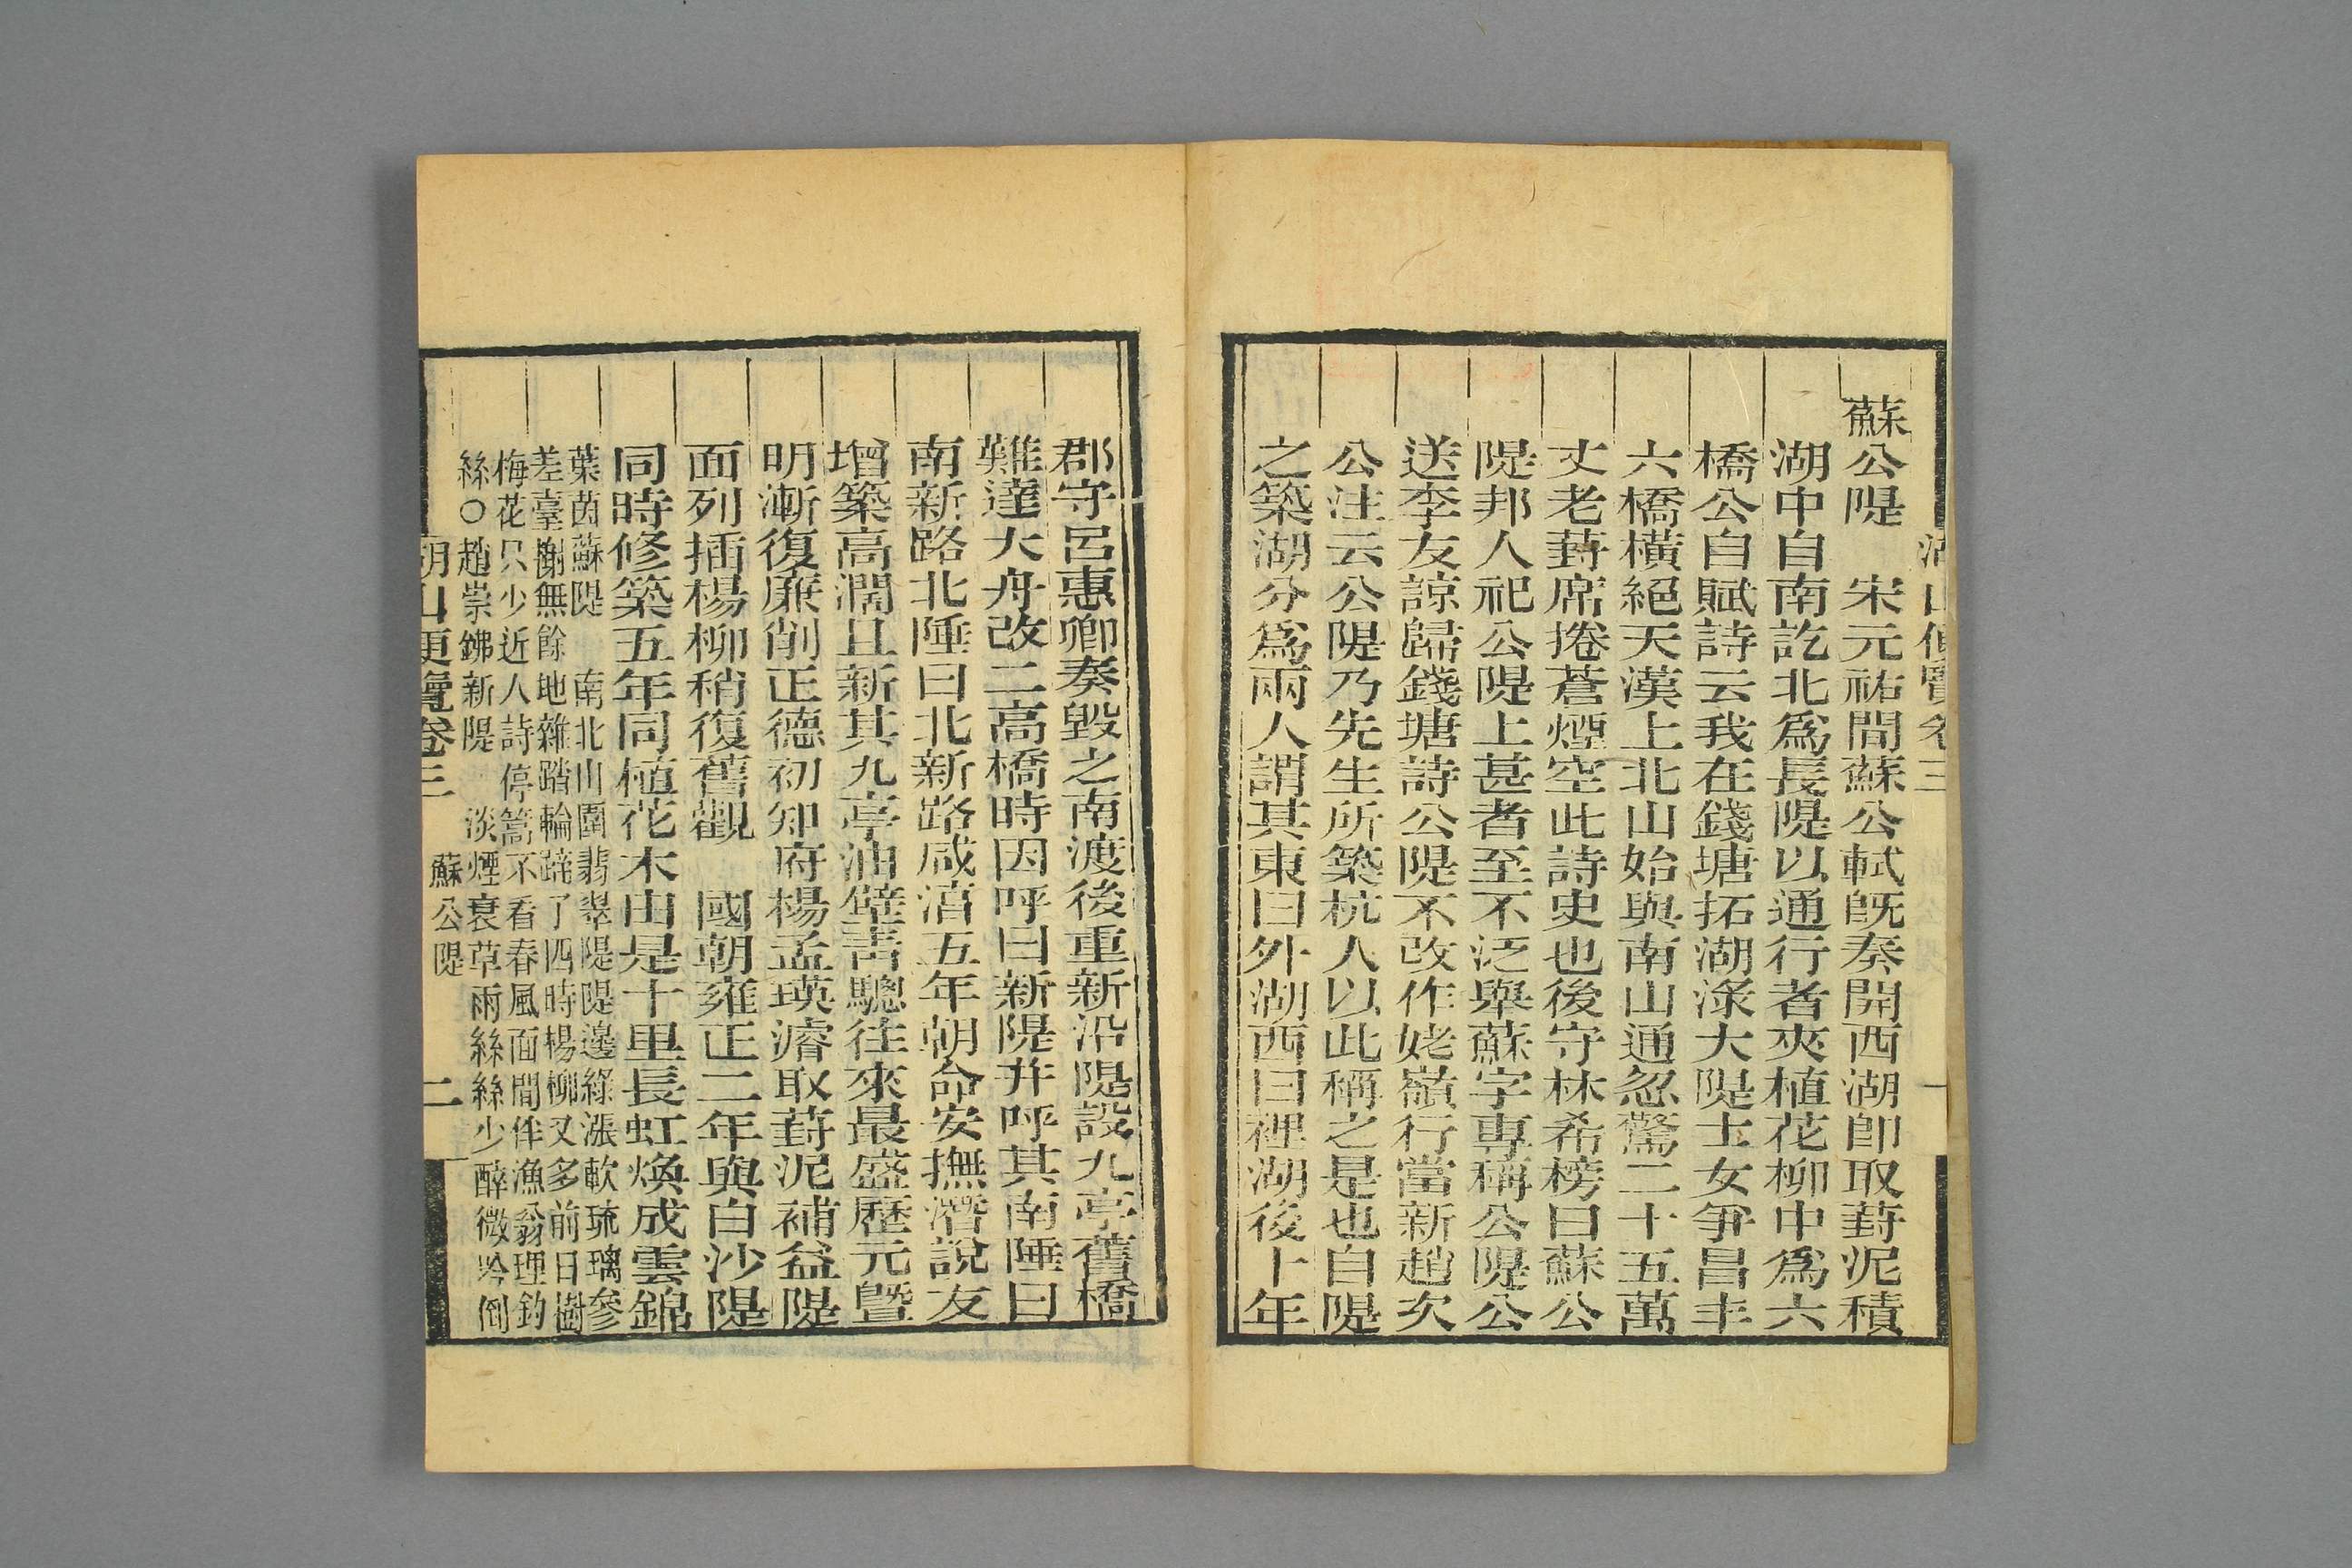 湖山便覽卷三
蘇公隄　宋元祐間蘇公軾既奏開西湖卽取葑泥積
湖中自南訖北爲長隄以通行者夾植花柳中爲六
橋公自賦詩云我在錢塘拓湖淥大隄士女爭昌丰
六橋橫絕天漢上北山始與南山通忽驚二十五萬
丈老葑席捲蒼煙空此詩史也後守林希榜曰蘇公
隄邦人祀公隄上甚者至不泛舉蘇字專稱公隄公
送李友諒歸錢塘詩公隄不改作姥嶺行當新趙次
公注云公隄乃先生所築杭人以此稱之是也自隄
之築湖分爲兩人謂其東曰外湖西曰裡湖後十年
郡守呂惠卿奏毀之南渡後重新沿隄設九亭舊橋
難達大舟改二高橋時因呼曰新隄并呼其南陲曰
南新路北陲曰北新路咸淳五年朝命安撫潛說友
增築高濶且新其九亭油壁青驄往來最盛歷元曁
明漸復廉削正德初知府楊孟瑛濬取葑泥補益隄
面列插楊柳稍復舊觀　國朝雍正二年與白沙隄
同時修築五年同植花木由是十里長虹煥成雲錦
葉茵蘇隄　南北山圍翡翠隄隄邊綠漲軟琉璃參
差臺榭無餘地雜踏輪蹏了四時楊柳又多前日樹
梅花只少近人詩停篙不看春風面閒伴漁翁理釣
絲○趙崇鉘新隄　淡煙衰草雨絲絲少醉微吟倒
湖山便覽卷三　蘇公隄　二